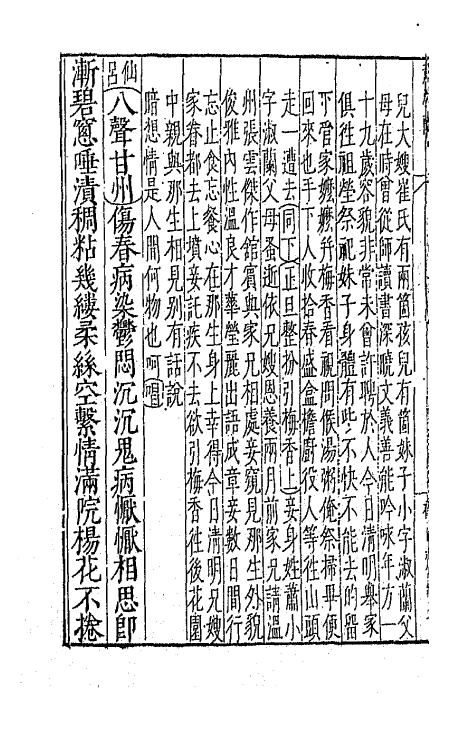 兒大嫂崔氏有兩箇孩兒有箇妹子小字淑蘭父
母在時曾從師讀書深曉文義善能吟咏年方一
十九歲容貌非常未曾許聘於人今日清明舉家
俱徃祖塋祭祀妹子身體有些不快不能去的留
下管家嬷嬷并梅香看視問候湯粥俺祭掃畢便
回來也手下人收拾春盛盒擔廚役人等徃山頭
走一遭去同下正旦整扮引梅香上妾身姓蕭小
字淑蘭父母蚤逝依兄嫂恩養兩月前家兄請溫
州張雲傑作館賓與家兄相處妾窺見那生外貌
俊雅內性溫良才華瑩麗出語成章妾數日間行
忘止食忘餐心在那生身上幸得今日清明兄嫂
家眷都去上墳妾託疾不去欲引梅香徃後花園
中親與那生相見別有話說
暗想情是人間何物也呵唱
仙呂八聲甘州傷春病染鬱悶沉沉鬼病懨懨相思即
漸碧窻唾漬稠粘幾縷柔絲空繫情滿院楊花不捲